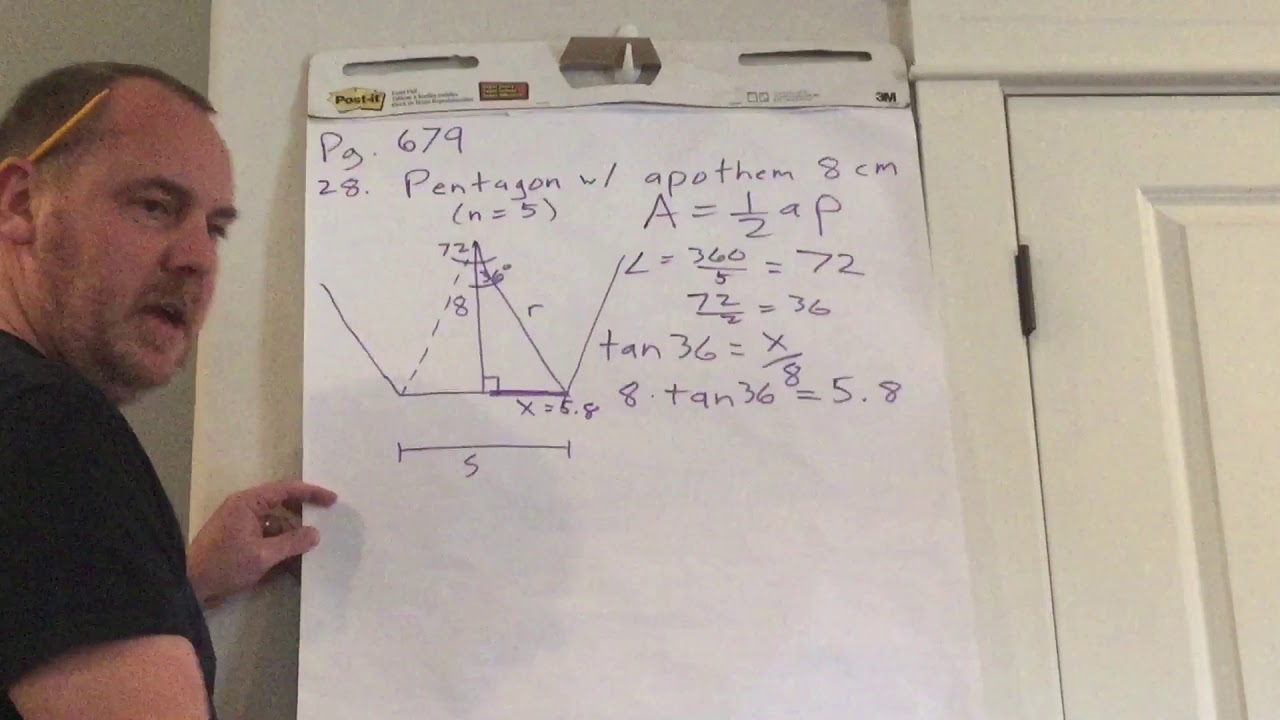 Post-it
3M
Pg. 679
28. Pentagon w/ apothem 8 cm
(n = 5)
A = 1/2 a p
72
36°
8
r
∠ = 360/5 = 72
72/2 = 36
tan 36 = x/8
8 · tan 36 = 5.8
x = 5.8
s